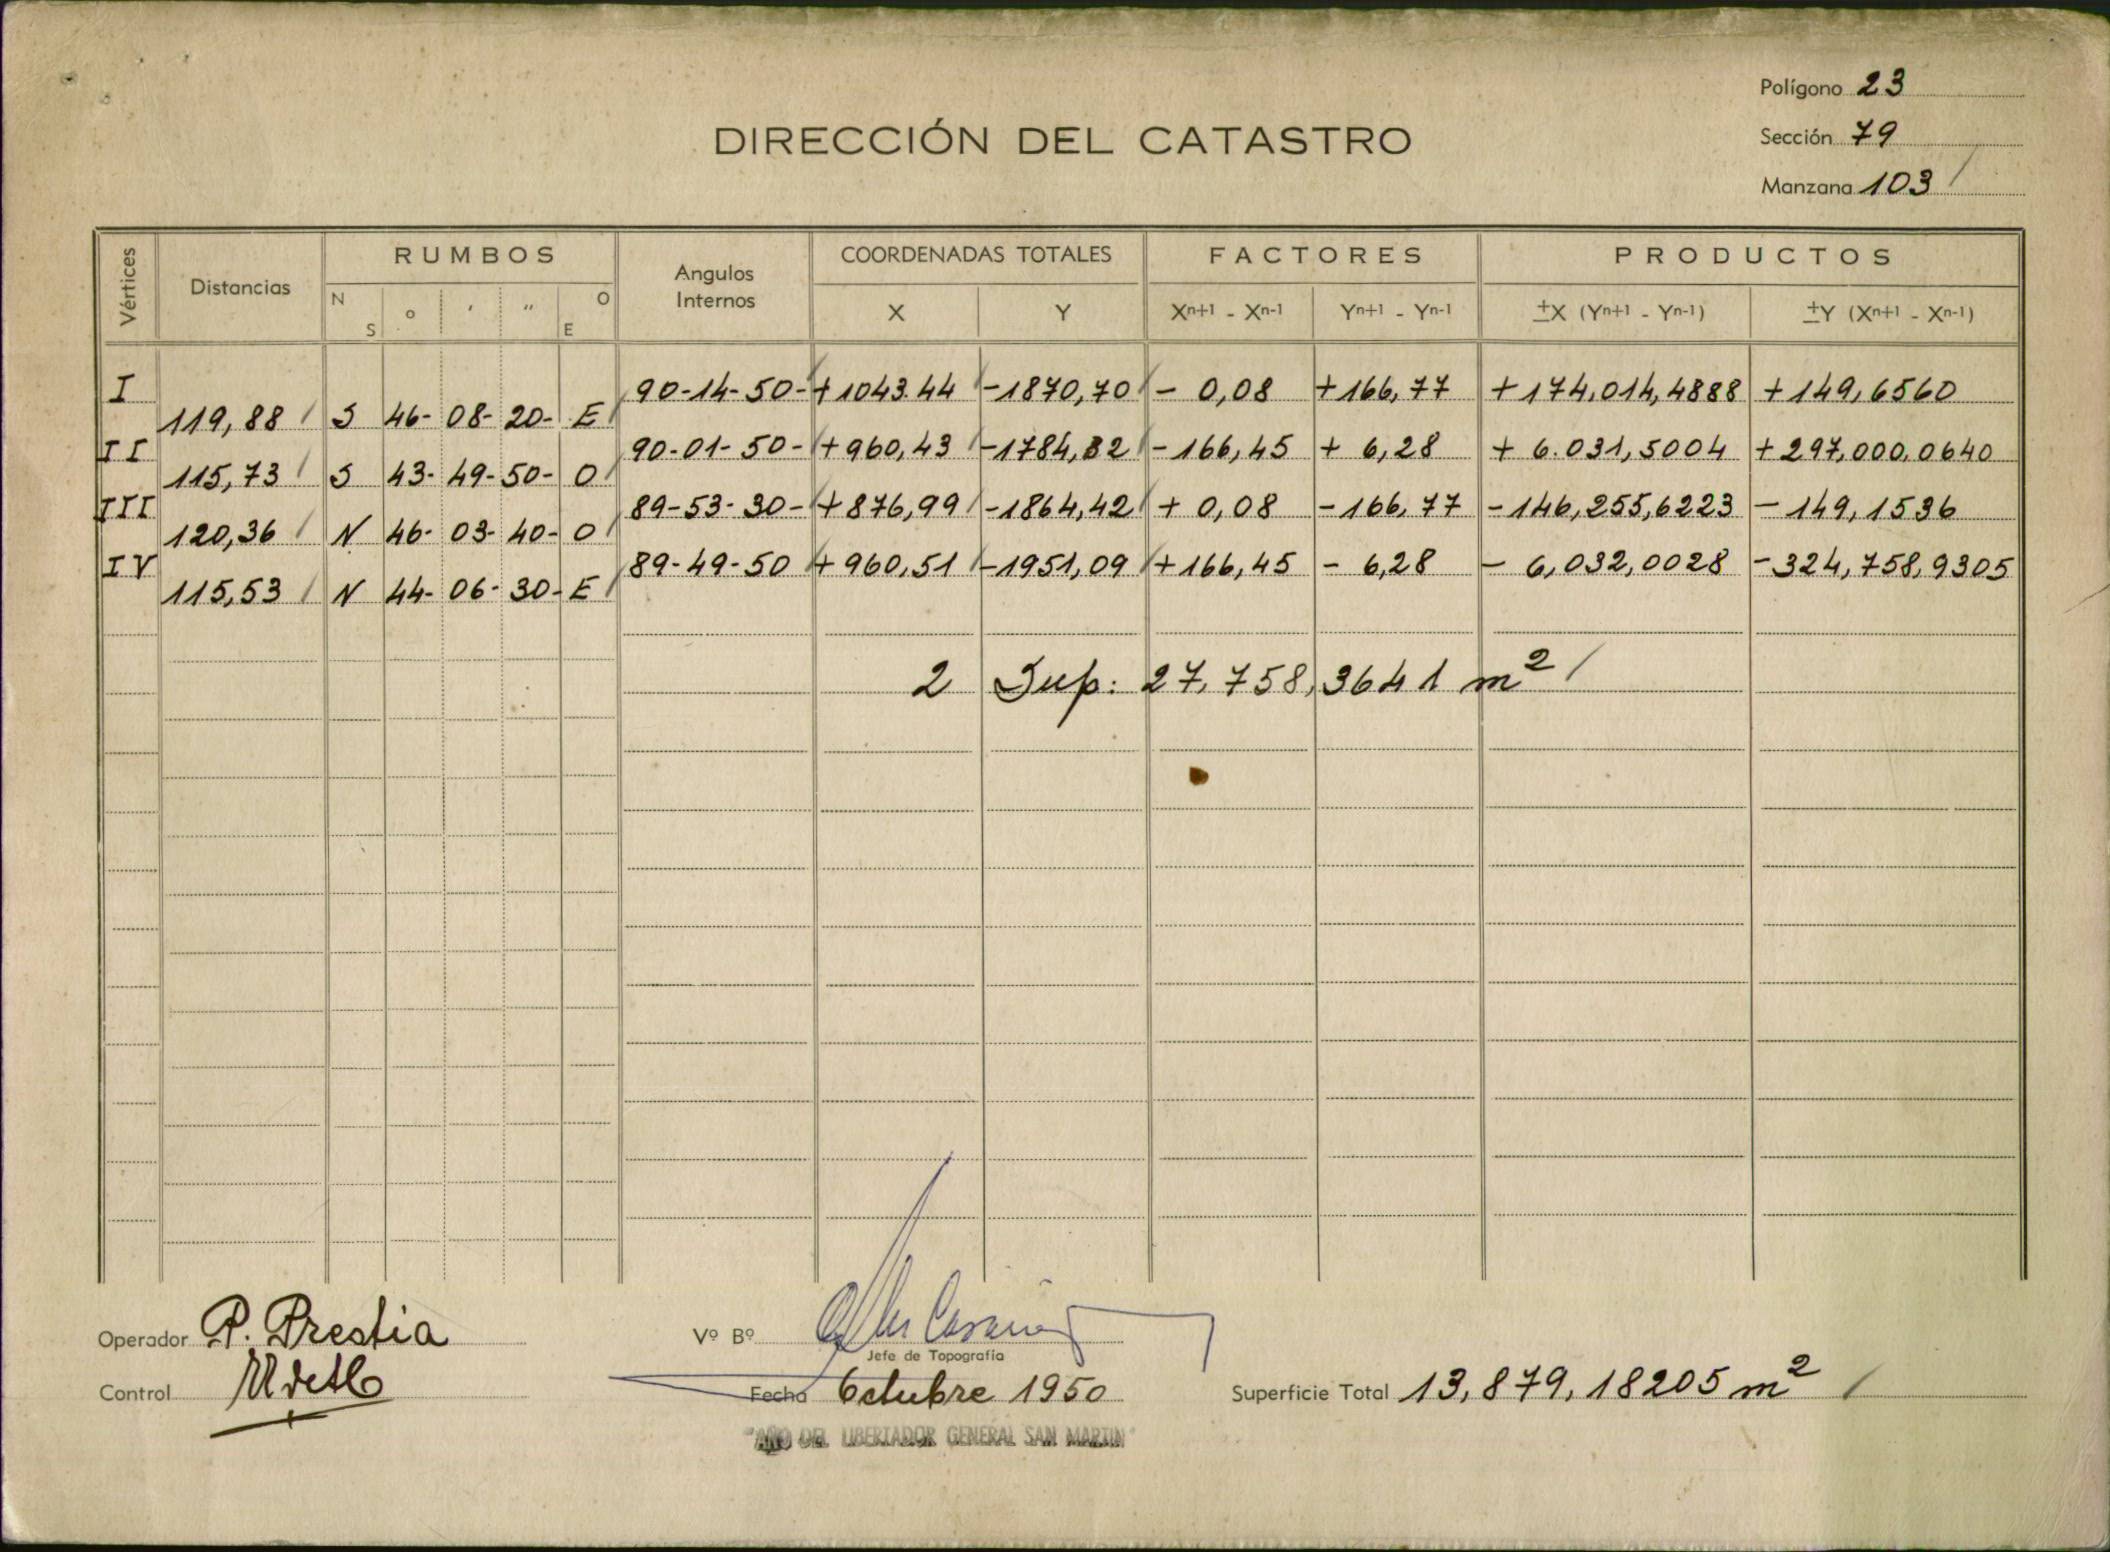 Polígono 23
Sección 79
Manzana 103
DIRECCIÓN DEL CATASTRO
Vértices Distancias RUMBOS Angulos Internos COORDENADAS TOTALES FACTORES PRODUCTOS
N S ° ' " O E X Y Xn+1 - Xn-1 Yn+1 - Yn-1 ±X (Yn+1 - Yn-1) ±Y (Xn+1 - Xn-1)
I 90-14-50- +1043.44 -1870,70 - 0,08 +166,77 +174,014,4888 +149,6560
119,88 S 46- 08- 20- E
II 90-01-50- +960,43 -1784,32 -166,45 + 6,28 + 6.031,5004 +297,000,0640
115,73 S 43- 49- 50- O
III 89-53-30- +876,99 -1864,42 + 0,08 -166,77 -146,255,6223 - 149,1536
120,36 N 46- 03- 40- O
IV 89-49-50 +960,51 -1951,09 +166,45 - 6,28 - 6,032,0028 -324,758,9305
115,53 N 44- 06- 30- E
2 Sup: 27,758,3641 m²
Operador P. Prestia
Vº Bº
Jefe de Topografía
Control
Fecha Octubre 1950
Superficie Total 13,879,18205 m²
"AÑO DEL LIBERTADOR GENERAL SAN MARTIN"